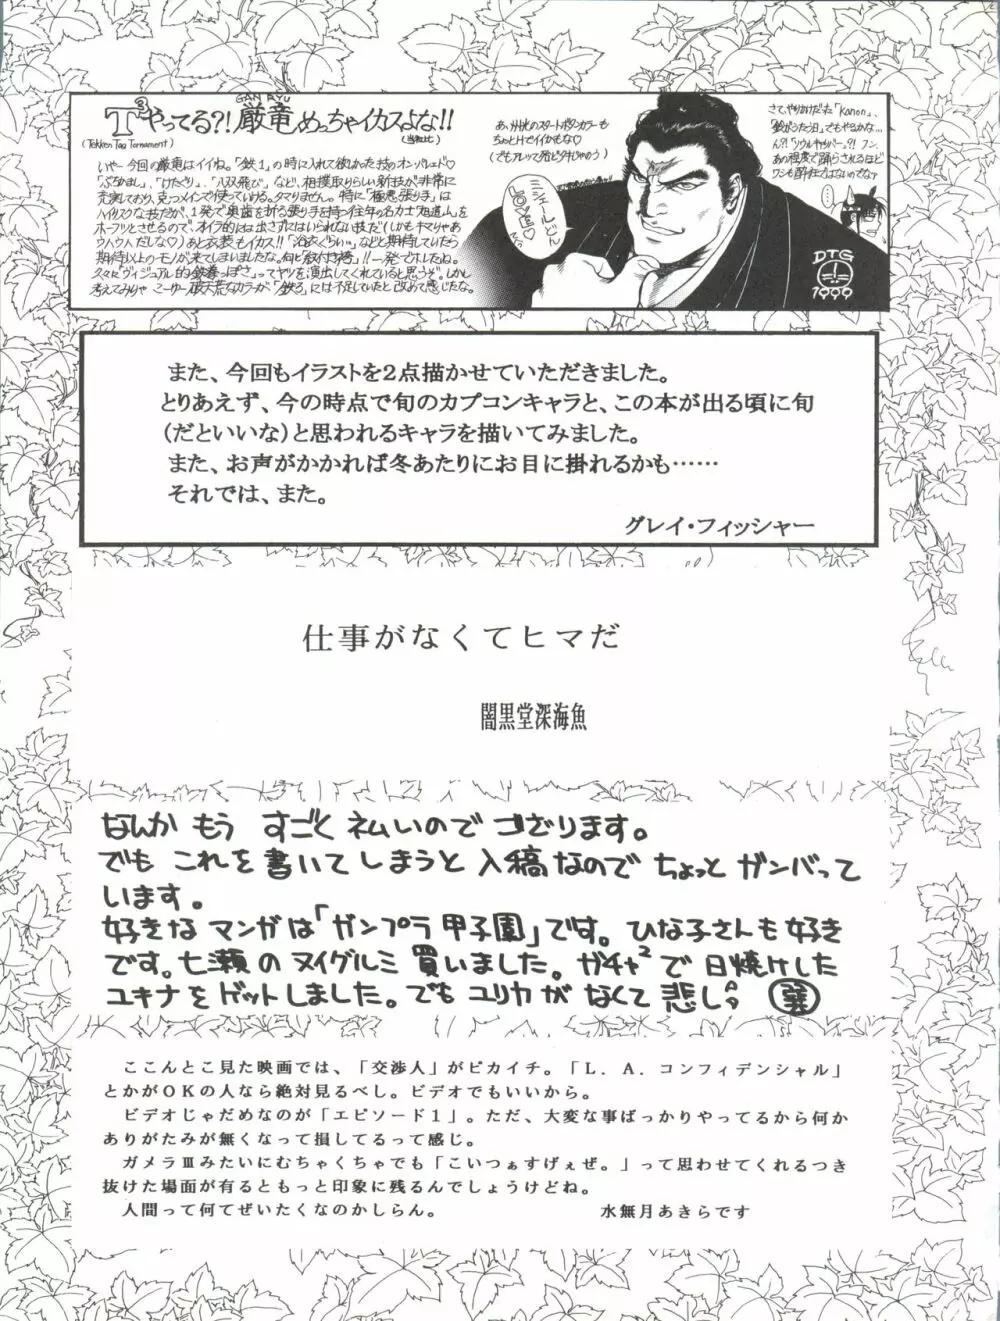 GAN RYU
T³やってる?!厳竜めっちゃイカスよな!!
(Tekken Tag Tournament)
(当社比)
いやー今回の厳竜はイイね。「鉄1」の時に入れて欲しかった技のオンパレード♡
「ぶちかまし」、「けたぐり」、「八双飛び」など、相撲取りらしい新技が非常に
充実しており、且つメインで使っていける。タマリません。特に「極悪張り手」は
ハイリスクな技だが、1発で奥歯を折る張り手を持つ往年の名力士
ウハウハだしな♡)あと衣装もイカス!!「浴衣くらい…」などと期待していたら
期待以上のモノが来てしまいましたな。何と「紋付き袴」!!一発でKOしたね。
久々に「ヴィジュアル的鉄拳っぽさ」ってヤツを演出してくれていると思うぞ。しかし
考えてみりゃ こーゆー破天荒なカラーが「鉄3」には不足していたと改めて感じたな。
ちょっとHでイイかもな♡
DTG
1999
また、今回もイラストを2点描かせていただきました。
とりあえず、今の時点で旬のカプコンキャラと、この本が出る頃に旬
(だといいな)と思われるキャラを描いてみました。
また、お声がかかれば冬あたりにお目に掛れるかも……
それでは、また。
グレイ・フィッシャー
仕事がなくてヒマだ
闇黒堂深海魚
なんか もう すごく ネムいので ゴざります。
でも これを 書いて しまうと 入稿 なので ちょっと ガンバって
います。
好きな マンガは「ガンプラ 甲子園」です。ひな子さんも 好き
です。七瀬 の ヌイグルミ 買いました。ガチャ²で 日焼けした
ユキナを ゲット しました。でも ユリカが なくて 悲しい
ここんとこ見た映画では、「交渉人」がピカイチ。「L.A.コンフィデンシャル」
とかがOKの人なら絶対見るべし。ビデオでもいいから。
ビデオじゃだめなのが「エピソード1」。ただ、大変な事ばっかりやってるから何か
ありがたみが無くなって損してるって感じ。
ガメラⅢみたいにむちゃくちゃでも「こいつぁすげぇぜ。」って思わせてくれるつき
抜けた場面が有るともっと印象に残るんでしょうけどね。
人間って何てぜいたくなのかしらん。
水無月あきらです